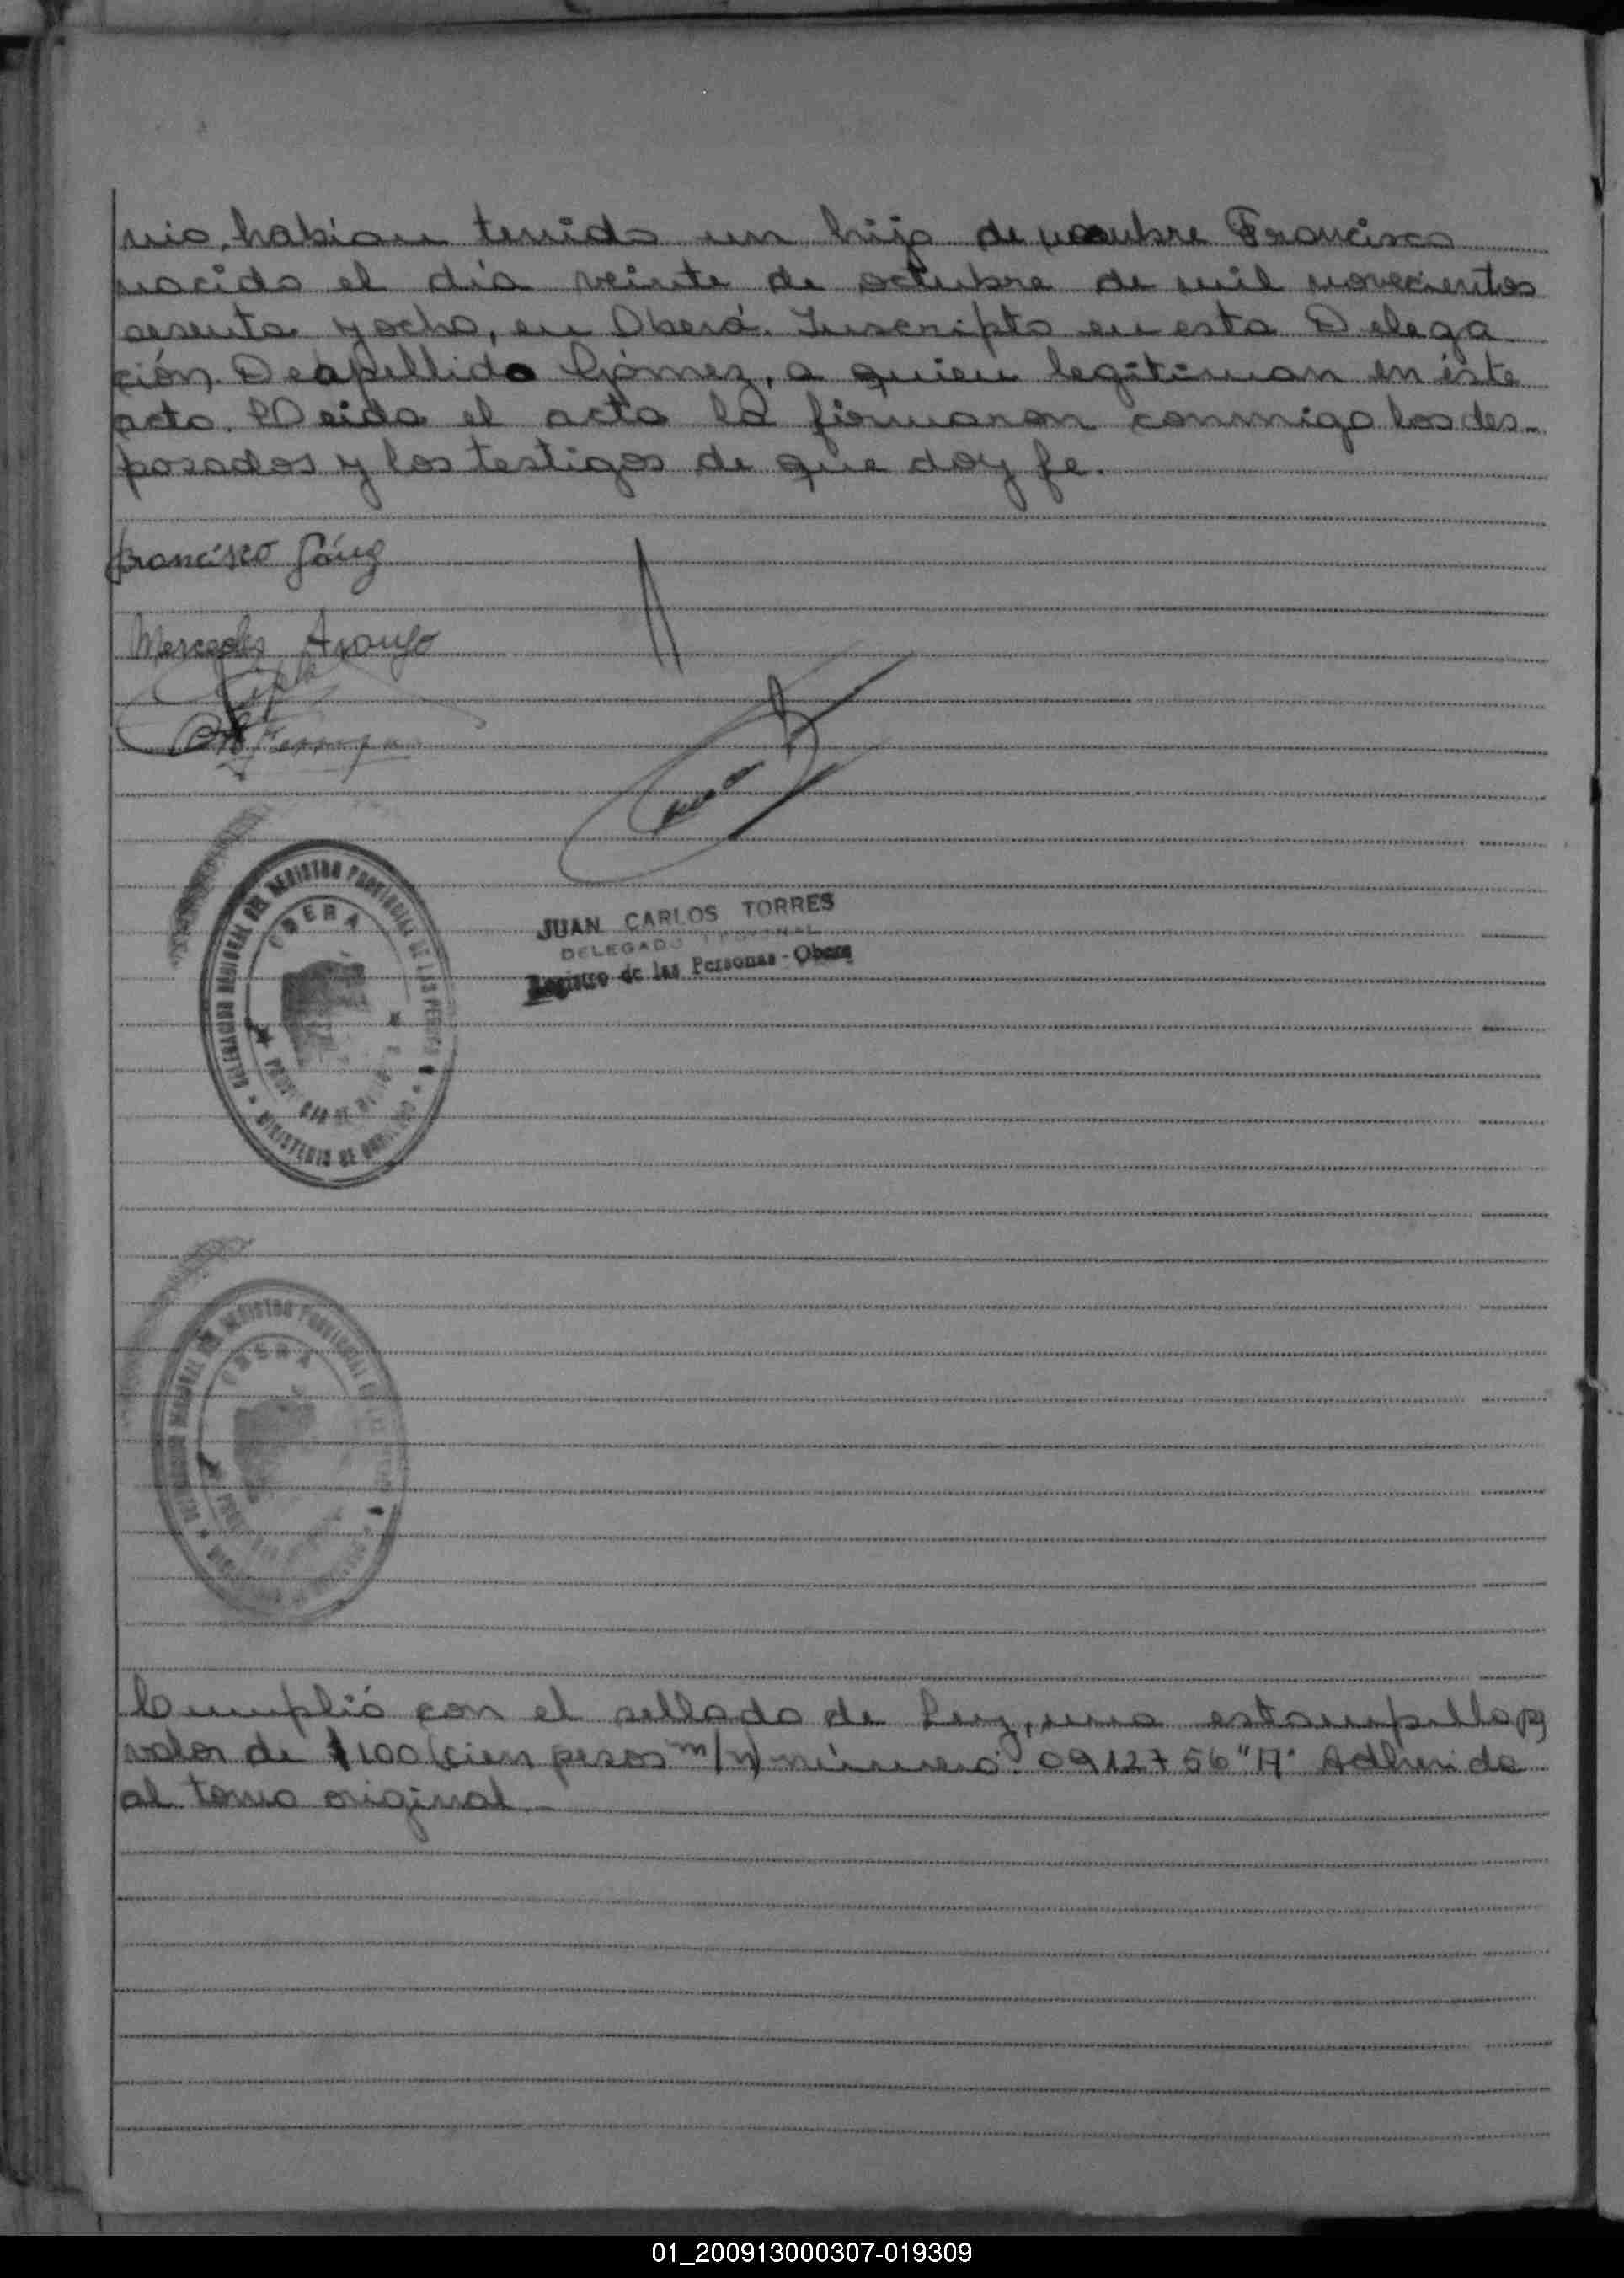 nio, habían tenido un hijo de nombre Francisco
nacido el día veinte de octubre de mil novecientos
sesenta y ocho, en Oberá. Inscripto en esta Delega
ción. De apellido Gómez, a quien legitiman en éste
acto. Leida el acta la firmaron conmigo los des-
posados y los testigos de que doy fe.
Francisco
Mercedes Araujo
DELEGACION REGIONAL DEL REGISTRO PROVINCIAL DE LAS PERSONAS
OBERA
PROVINCIA DE
MINISTERIO DE
JUAN CARLOS TORRES
DELEGADO REGIONAL
Registro de las Personas - Obera
DELEGACION REGIONAL DEL REGISTRO PROVINCIAL DE
OBERA
Cumplió con el sellado de Ley, una estampilla p/
valor de $ 100 (cien pesos m/n) número: 0912756 "A" Adherida
al tomo original.-
01_200913000307-019309